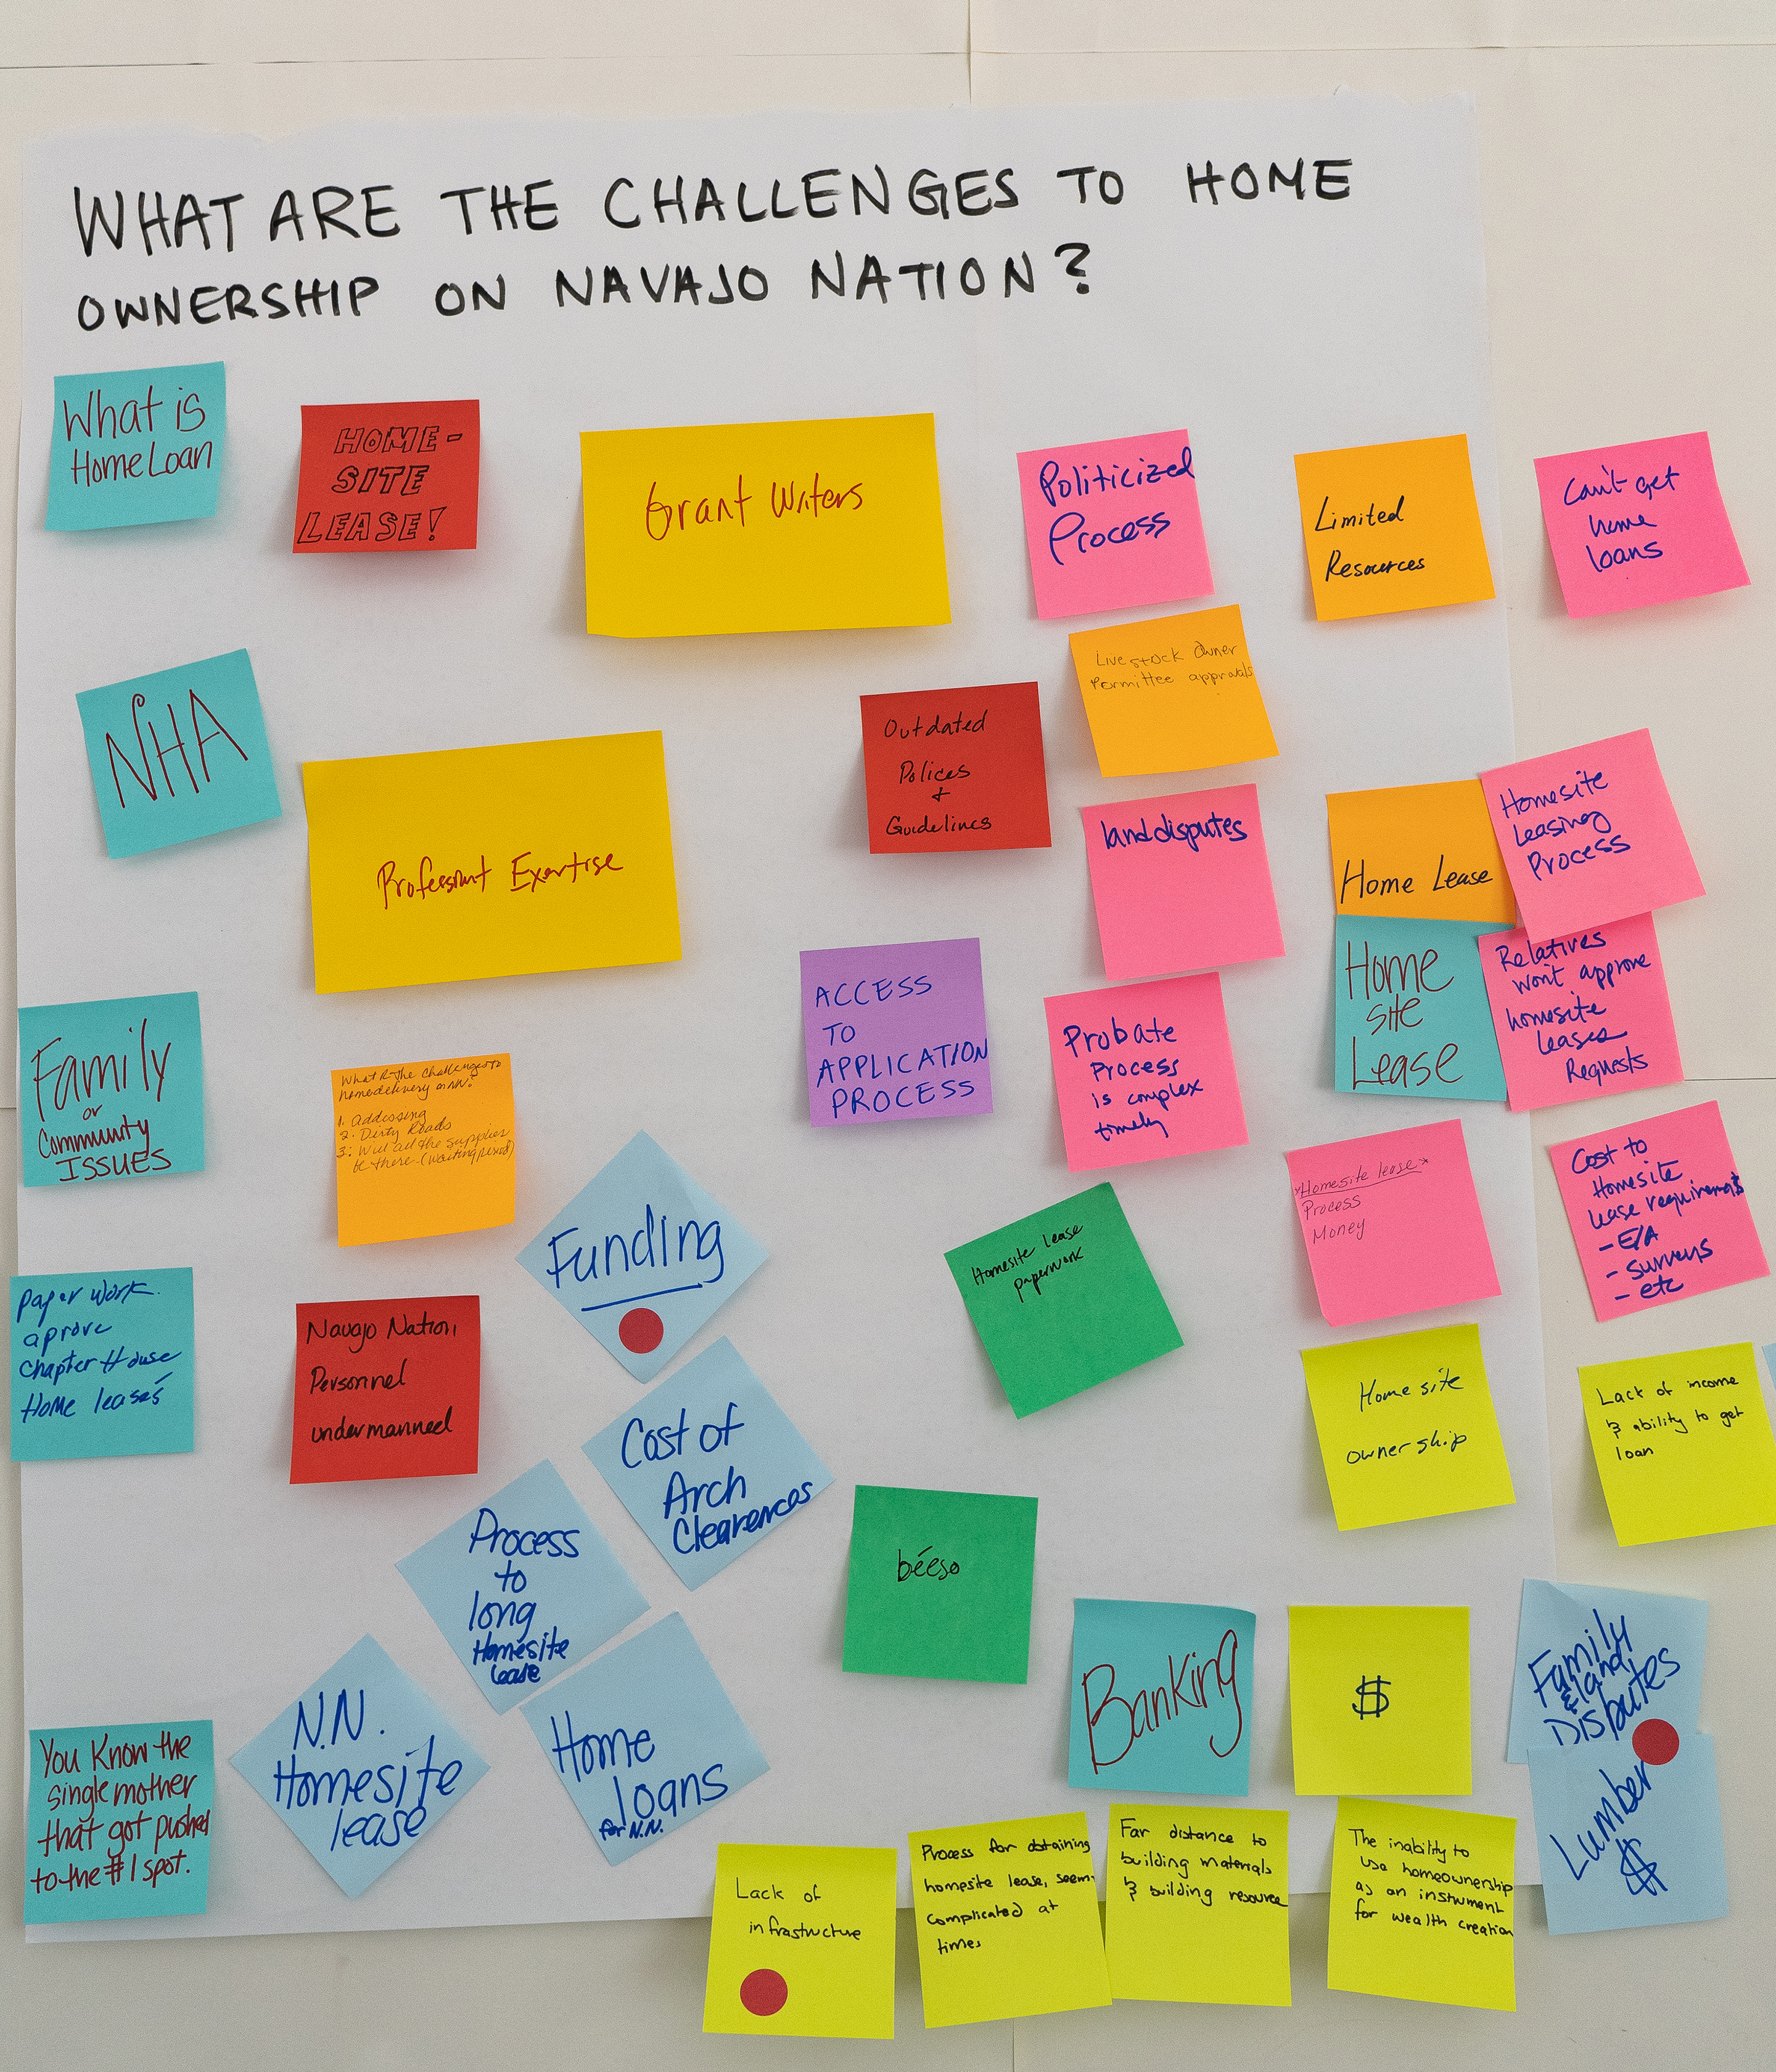 WHAT ARE THE CHALLENGES TO HOME
OWNERSHIP ON NAVAJO NATION?
What is
Home Loan
HOME-
SITE
LEASE!
Grant Writers
Politicized
Process
Limited
Resources
Can't get
home
loans
NHA
Professiont Exertise
Outdated
Polices
+
Guidelines
Livestock Owner
Permittee approvals
land disputes
Home Lease
Homesite
Leasing
Process
Family
or
Community
ISSUES
What R the Challenges to
homedelivery on NN?
1. Addessing
2. Dirty Roads
3. Will all the supplies
be there. (waiting period)
ACCESS
TO
APPLICATION
PROCESS
Probate
Process
is complex
timely
Home
Site
Lease
Relatives
won't approve
homesite
leases
Requests
paper work.
aprove
chapter House
Home leases
Navajo Nation,
Personnel
undermanned
Funding
Cost of
Arch
Clearences
Homesite lease
paperwork
*Homesite lease*
Process
Money
Cost to
Homesite
lease requirements
- E/A
- surveys
- etc
Home site
ownership
Lack of income
& ability to get
loan
Process
to
long
Homesite
lease
béeso
Banking
$
Family
& land
Disputes
You Know the
single mother
that got pushed
to the #1 spot.
N.N.
Homesite
lease
Home
loans
for N.N.
Lumber
$
Lack of
infrastructure
Process for obtaining
homesite lease, seem
complicated at
times
Far distance to
building materials
& building resource
The inability to
use homeownership
as an instrument
for wealth creation